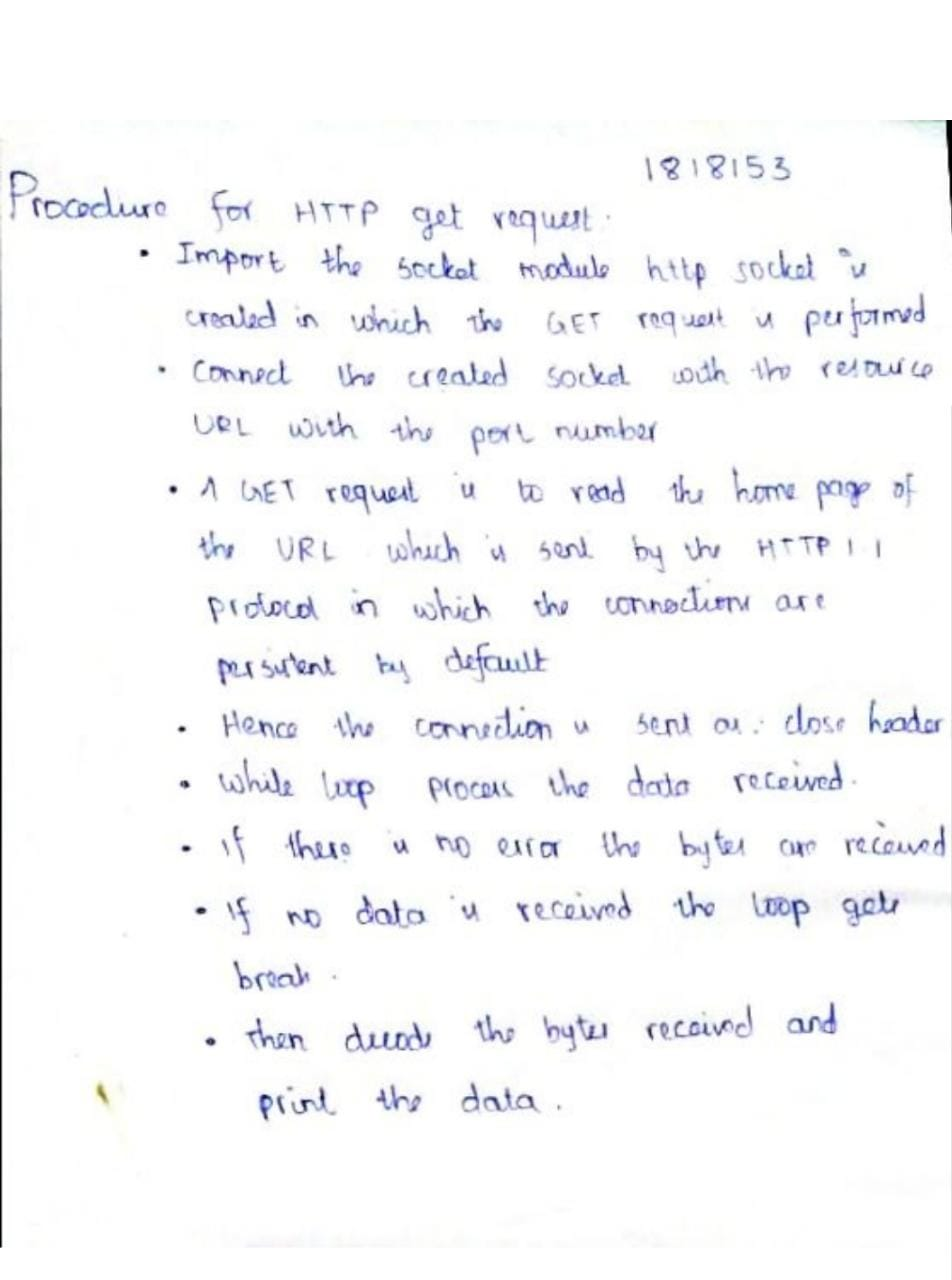 1818153
Procedure for HTTP get request.
• Import the socket module http socket is
created in which the GET request is performed
• Connect the created socket with the resource
URL with the port number
• A GET request is to read the home page of
the URL which is sent by the HTTP 1.1
protocol in which the connections are
persistent by default
• Hence the connection is sent as : close header
• while loop process the data received.
• if there is no error the bytes are received
• If no data is received the loop gets
break.
• Then decode the bytes received and
print the data.